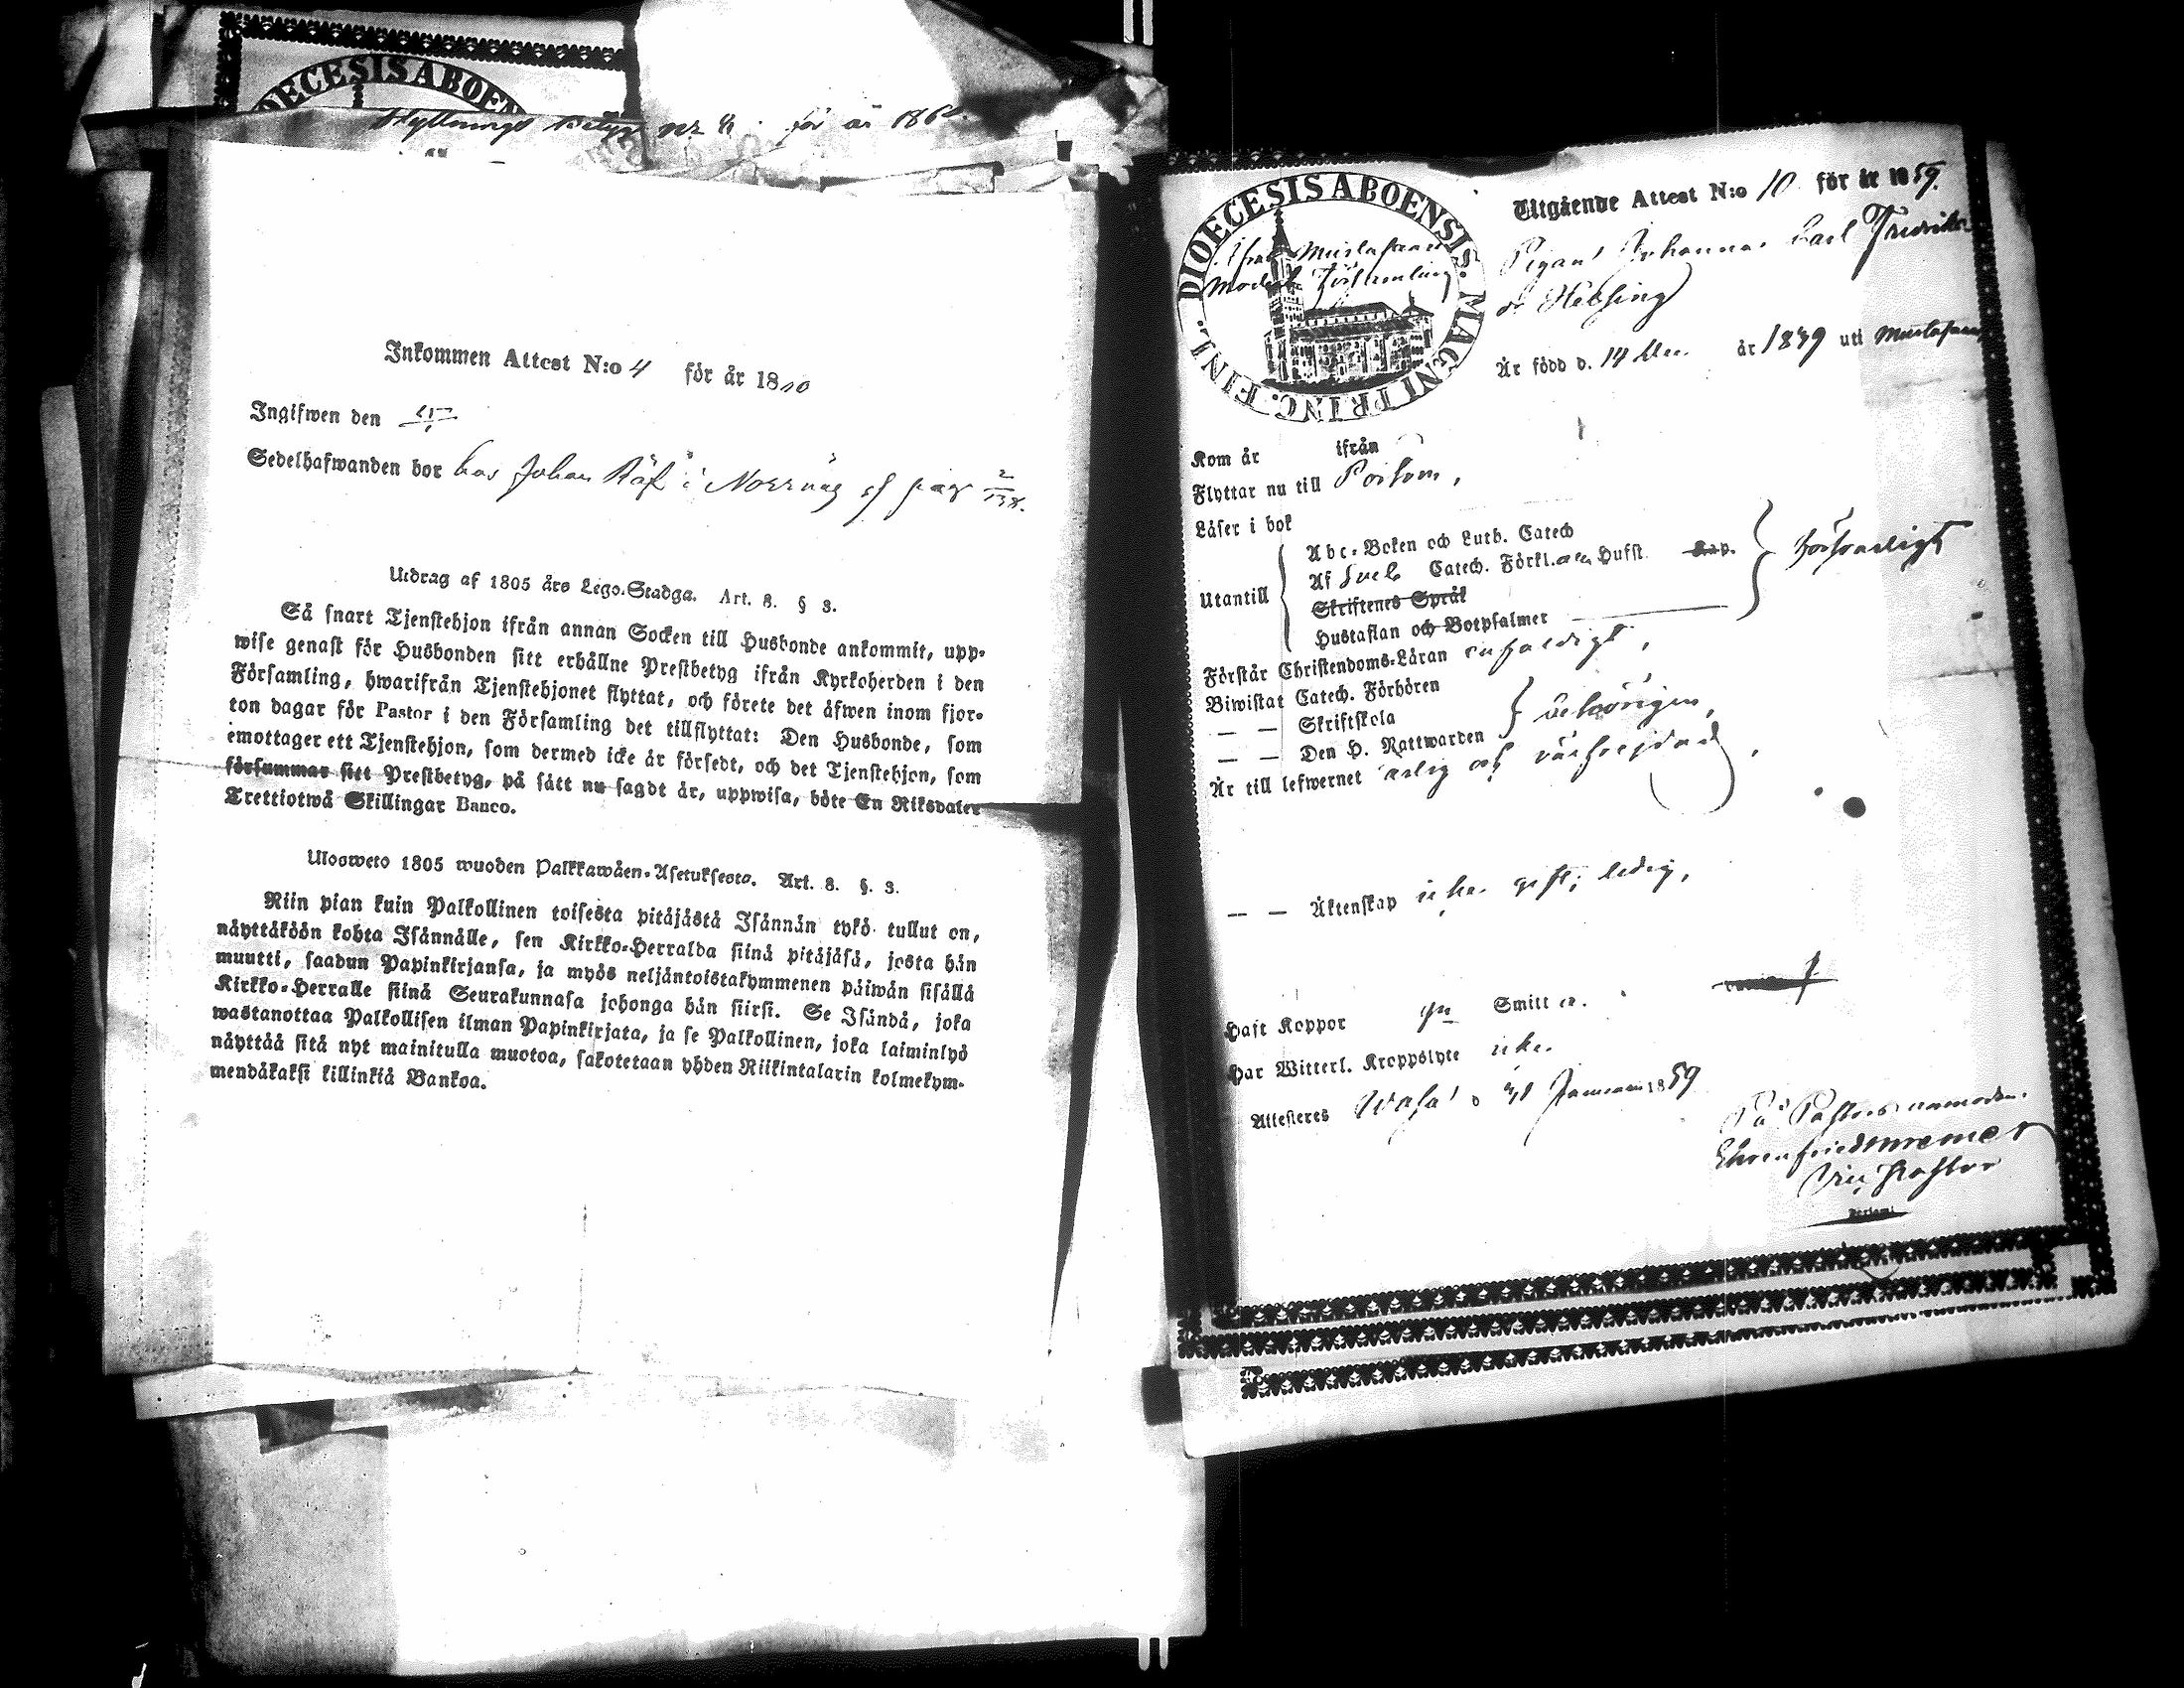 DIOECESIS ABOEN
Flyttnings Betyg för år 186
Inkommen Attest N:o 4 för år 18
Ingifwen den
Sedelhafwanden bor hos Johan i pag
Utdrag af 1805 års Lego-Stadga. Art. 8. § 3.
Så snart Tjenstehjon ifrån annan Socken till Husbonde ankommit, upp-
wise genast för Husbonden sitt erhållne Prestbetyg ifrån Kyrkoherden i den
Församling, hwarifrån Tjenstehjonet flyttat, och förete det äfwen inom fjor-
ton dagar för Pastor i den Församling det tillflyttat: Den Husbonde, som
emottager ett Tjenstehjon, som dermed icke är försedt, och det Tjenstehjon, som
försummar sitt Prestbetyg, på sätt nu sagdt är, uppwisa, böte En Riksdaler
Trettiotwå Skillingar Banco.
Ulosweto 1805 wuoden Palkkawäen-Asetuksesta. Art. 8. §. 3.
Niin pian kuin Palkollinen toisesta pitäjästä Isännän tykö tullut on,
näyttäköön kohta Isännälle, sen Kirkko-Herralda siinä pitäjäsä, josta hän
muutti, saadun Papinkirjansa, ja myös neljäntoistakymmenen päiwän sisällä
Kirkko-Herralle siinä Seurakunnasa johonga hän siirsi. Se Isändä, joka
wastanottaa Palkollisen ilman Papinkirjata, ja se Palkollinen, joka laiminlyö
näyttää sitä nyt mainitulla muotoa, sakotetaan yhden Riikintalarin kolmekym-
mendäkaksi killinkiä Bankoa.
DIOECESIS ABOENSIS. MAGNI PRINC. FINL.
Ifrån Mustasaari
Moder Församling
Utgående Attest N:o 10 för år 1859.
Pigan Johanna Carl Fredriks
dr Helsing
Är född d. 14 år 1839 uti Mustasaari
Kom år ifrån
Flyttar nu till Pörtom,
Läser i bok
Utantill
Abc-Boken och Luth. Catech
Af Sveb Catech. Förkl. Husst. Kap.
Skriftenes Språk
Hustaflan och Botpsalmer
försvarligt
Förstår Christendoms-Läran enfaldigt,
Biwistat Catech. Förhören
— — Skriftskola
— — Den H. Nattwarden
behörigen,
Är till lefwernet ärlig och välfrejdad,
— — Äktenskap icke gift, ledig,
Haft Koppor Smitt
Har Witterl. Kroppslyte icke.
Attesteres Wasa d 31 Januari 1859
På Pastors anmodan.
Vice Pastor